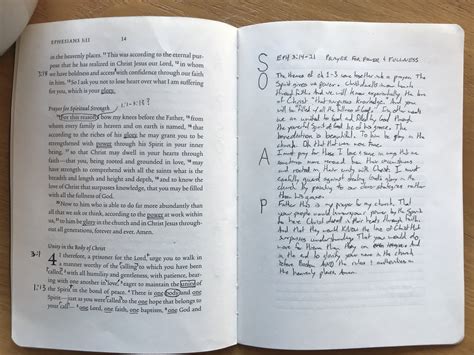 EPHESIANS 3:11
14
in the heavenly places. 11 This was according to the eternal pur-
pose that he has realized in Christ Jesus our Lord, 12 in whom
3:14
we have boldness and access with confidence through our faith
in him. 13 So I ask you not to lose heart over what I am suffering
for you, which is your glory.
Prayer for Spiritual Strength
1:1-3:13?
14 For this reason I bow my knees before the Father, 15 from
whom every family in heaven and on earth is named, 16 that
according to the riches of his glory he may grant you to be
strengthened with power through his Spirit in your inner
being, 17 so that Christ may dwell in your hearts through
faith—that you, being rooted and grounded in love, 18 may
have strength to comprehend with all the saints what is the
breadth and length and height and depth, 19 and to know the
love of Christ that surpasses knowledge, that you may be filled
with all the fullness of God.
20 Now to him who is able to do far more abundantly than
all that we ask or think, according to the power at work within
us, 21 to him be glory in the church and in Christ Jesus throughout
all generations, forever and ever. Amen.
Unity in the Body of Christ
3:1
4 I therefore, a prisoner for the Lord, urge you to walk in
a manner worthy of the calling to which you have been
called, 2 with all humility and gentleness, with patience, bearing
with one another in love, 3 eager to maintain the unity of
1:13
the Spirit in the bond of peace. 4 There is one body and one
Spirit—just as you were called to the one hope that belongs to
your call— 5 one Lord, one faith, one baptism, 6 one God and
S
O
A
P
EPH 3:14-21 PRAYER FOR POWER & FULLNESS
The themes of ch 1-3 come together into a prayer. The
Spirit gives us power, Christ dwells in our hearts
through faith and we will know experientially the love
of Christ "that surpasses knowledge." And you will
be "filled w/ all the fullness of God." In other words
we are united to God and filled by God through
the powerful Spirit at the of his grace. The
is breathtaking. To him be glory in the
church. Oh that that were true.
I must pray for those I love in this way
removed from their circumstances
and rooted in their unity with Christ. I must
carefully guard against stealing God's glory in the
church by pointing to our cleverness rather
than his grace.
Father this is my prayer for my church. That
your people would power by the Spirit
to have Christ dwell in their hearts through faith.
And that they would know the love of Christ that
surpasses understanding. That you would do
more for them than they can even imagine and
in the end so glorify your name in the church
before and the rulers & authorities in
the heavenly places. Amen.